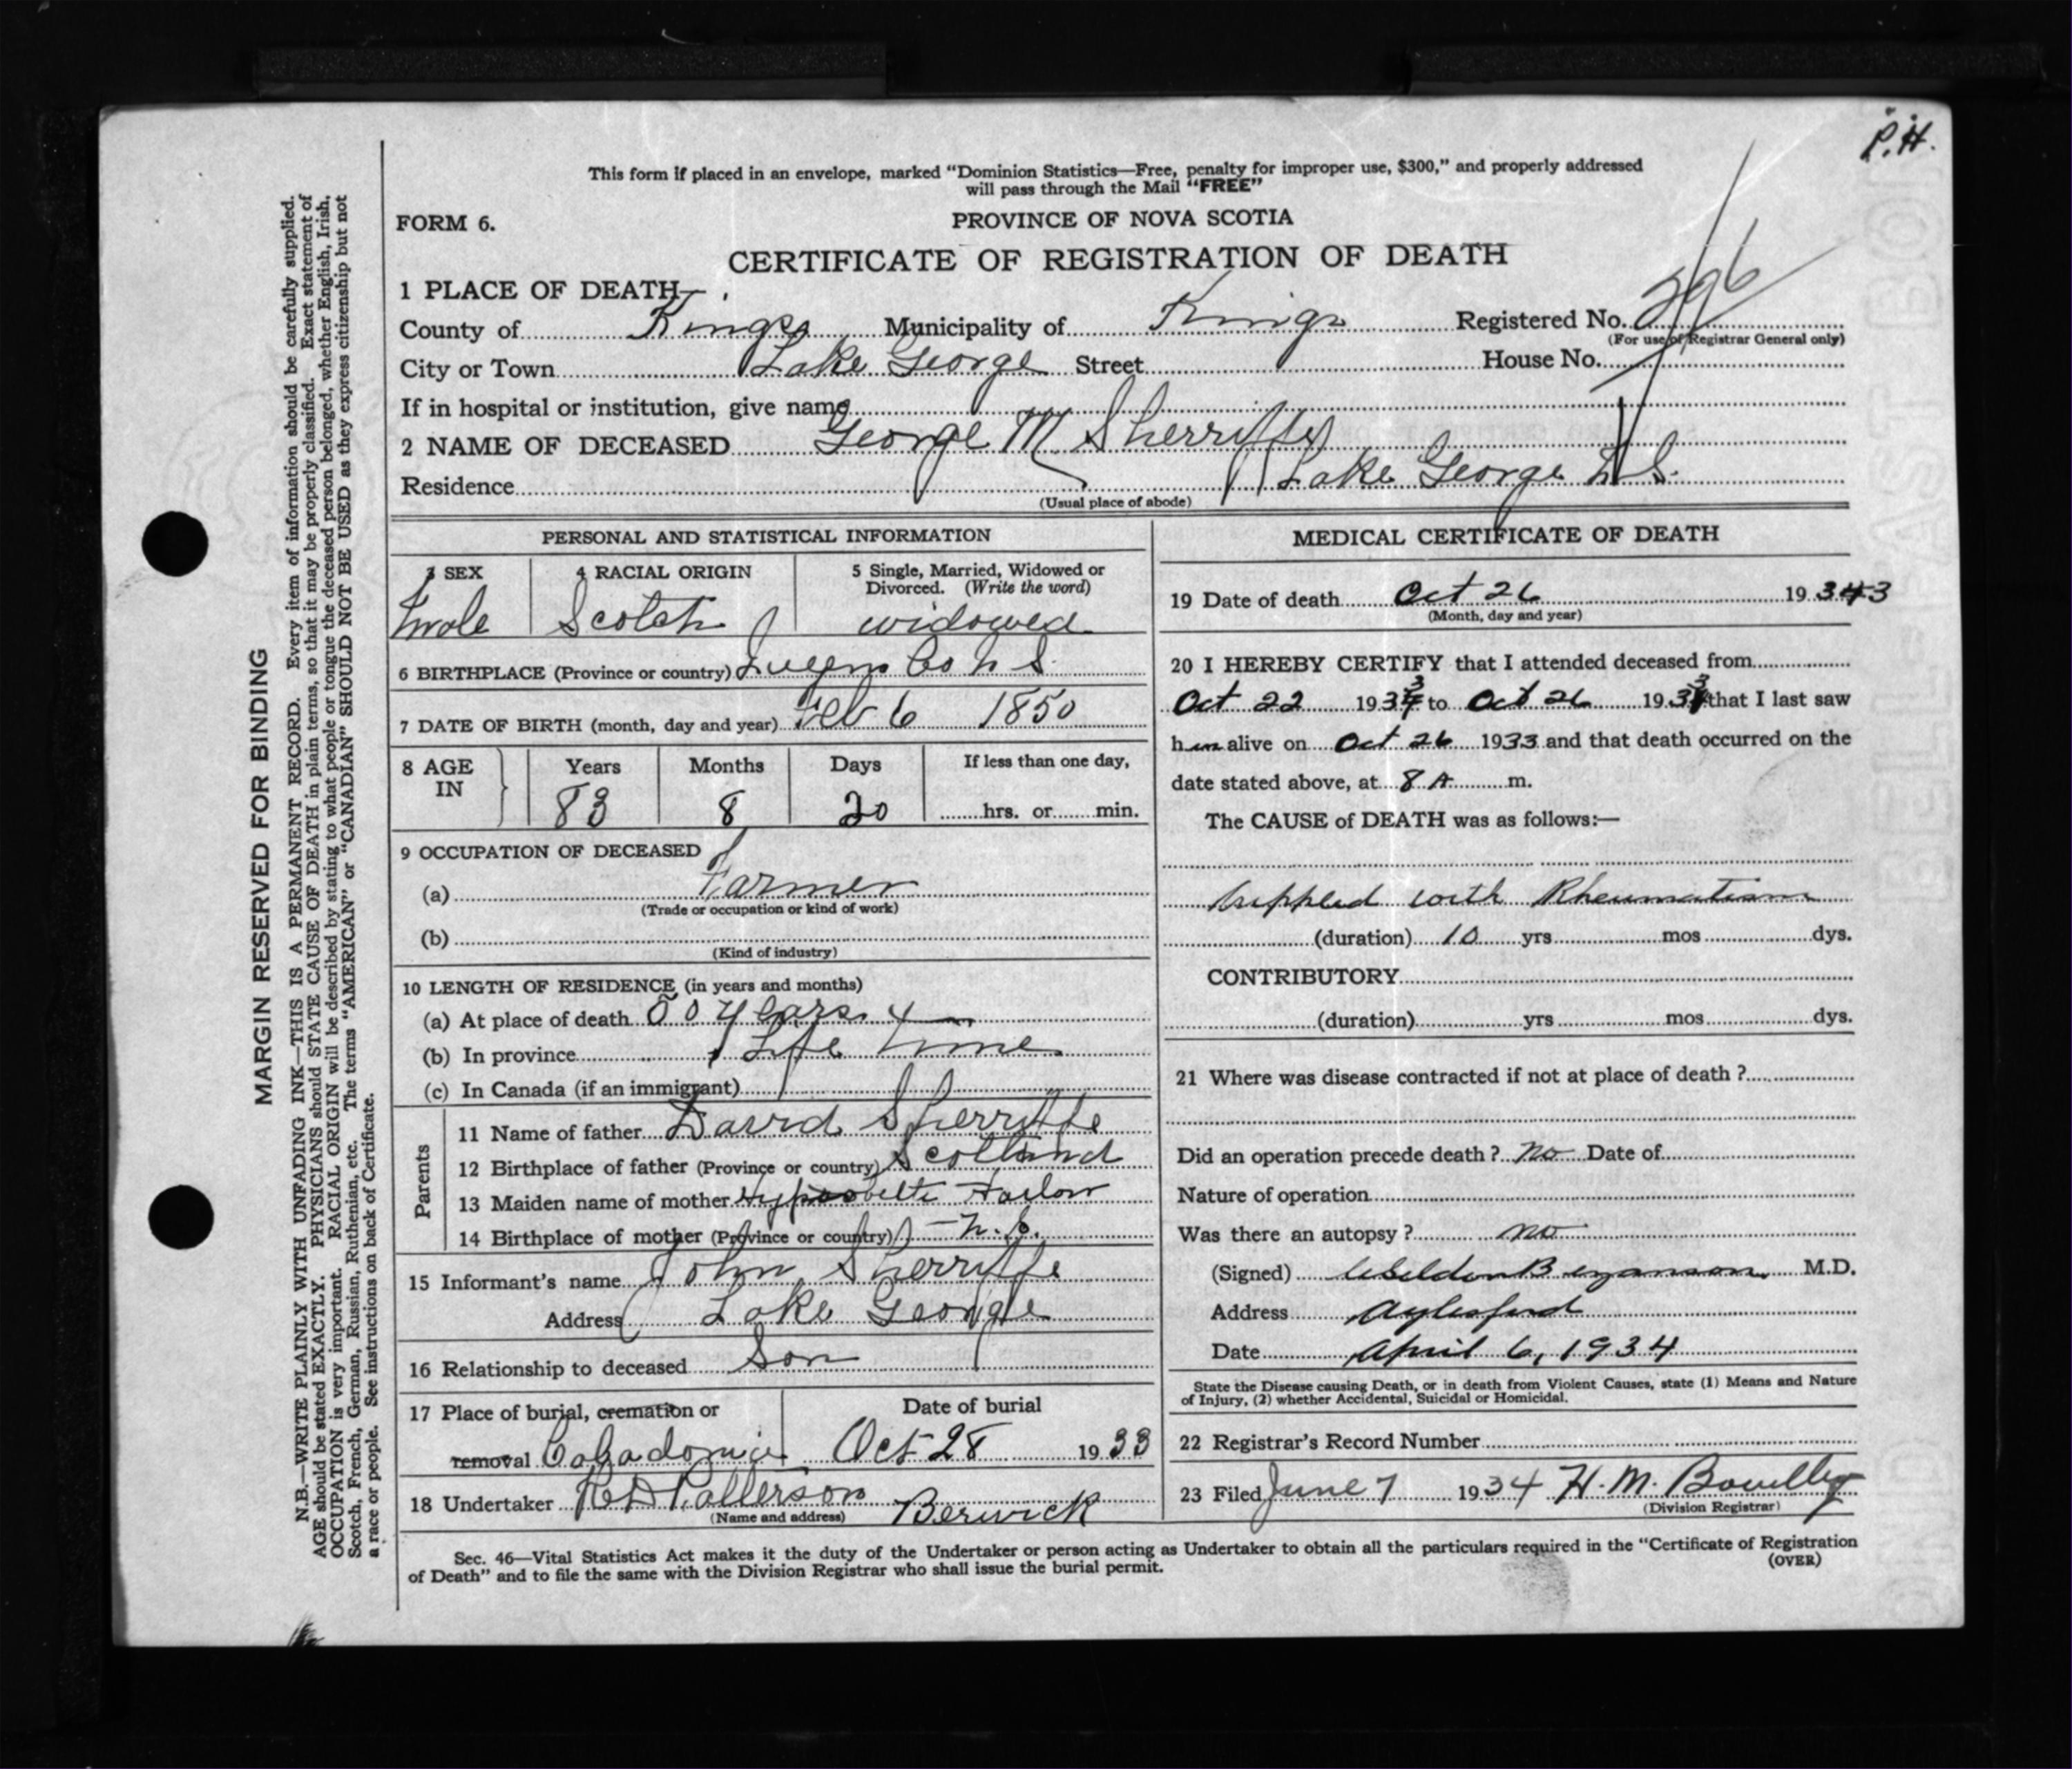 P.H.
This form if placed in an envelope, marked "Dominion Statistics—Free, penalty for improper use, $300," and properly addressed
will pass through the Mail "FREE"
FORM 6.
PROVINCE OF NOVA SCOTIA
CERTIFICATE OF REGISTRATION OF DEATH
1 PLACE OF DEATH—
County of Kings Municipality of Kings Registered No. 296
(For use of Registrar General only)
City or Town Lake George Street House No.
If in hospital or institution, give name
2 NAME OF DECEASED George M Sherriffs
Residence Lake George N S.
(Usual place of abode)
PERSONAL AND STATISTICAL INFORMATION
3 SEX 4 RACIAL ORIGIN 5 Single, Married, Widowed or
Divorced. (Write the word)
Male Scotch widowed
6 BIRTHPLACE (Province or country) Queens Co N S.
7 DATE OF BIRTH (month, day and year) Feb 6 1850
8 AGE IN Years Months Days If less than one day,
83 8 20 hrs. or min.
9 OCCUPATION OF DECEASED
(a) Farmer
(Trade or occupation or kind of work)
(b)
(Kind of industry)
10 LENGTH OF RESIDENCE (in years and months)
(a) At place of death 50 years
(b) In province Life time
(c) In Canada (if an immigrant)
Parents
11 Name of father David Sherriffs
12 Birthplace of father (Province or country) Scotland
13 Maiden name of mother Harlow
14 Birthplace of mother (Province or country) N.S.
15 Informant's name John Sherriffs
Address Lake George
16 Relationship to deceased Son
17 Place of burial, cremation or Date of burial
removal Caladonia Oct 28 1933
18 Undertaker Patterson Berwick
(Name and address)
MEDICAL CERTIFICATE OF DEATH
19 Date of death Oct 26 19343
(Month, day and year)
20 I HEREBY CERTIFY that I attended deceased from
Oct 22 1933 to Oct 26 1933 that I last saw
him alive on Oct 26 1933 and that death occurred on the
date stated above, at 8 A m.
The CAUSE of DEATH was as follows:—
Crippled with Rheumatism
(duration) 10 yrs mos dys.
CONTRIBUTORY
(duration) yrs mos dys.
21 Where was disease contracted if not at place of death ?
Did an operation precede death ? no Date of
Nature of operation
Was there an autopsy ? no
(Signed) Weldon Bezanson M.D.
Address Aylesford
Date April 6, 1934
State the Disease causing Death, or in death from Violent Causes, state (1) Means and Nature
of Injury, (2) whether Accidental, Suicidal or Homicidal.
22 Registrar's Record Number
23 Filed June 7 1934 H. M.
(Division Registrar)
Sec. 46—Vital Statistics Act makes it the duty of the Undertaker or person acting as Undertaker to obtain all the particulars required in the "Certificate of Registration
of Death" and to file the same with the Division Registrar who shall issue the burial permit.
(OVER)
MARGIN RESERVED FOR BINDING
N.B.—WRITE PLAINLY WITH UNFADING INK—THIS IS A PERMANENT RECORD. Every item of information should be carefully supplied.
AGE should be stated EXACTLY. PHYSICIANS should STATE CAUSE OF DEATH in plain terms, so that it may be properly classified. Exact statement of
OCCUPATION is very important. RACIAL ORIGIN will be described by stating to what people or tongue the deceased person belonged, whether English, Irish,
Scotch, French, German, Russian, Ruthenian, etc. The terms "AMERICAN" or "CANADIAN" SHOULD NOT BE USED as they express citizenship but not
a race or people. See instructions on back of Certificate.